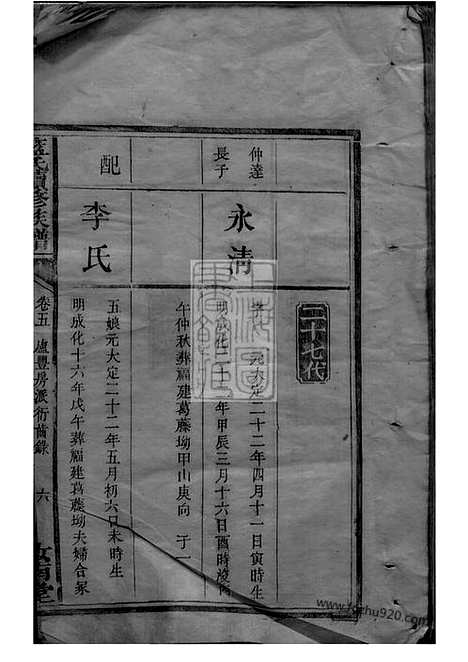 二十七代
仲達
長子
永清
元大定二十二年四月十一日寅時生
明成化二十年甲辰三月十六日酉時
午仲秋葬福建葛藤坳甲山庚向 丁一
配
李氏
五娘元大定二十二年五月初六日未時生
明成化十六年戊午葬福建葛藤坳夫婦合冢
藍氏續修族譜
卷五 盧豐房派衍齒錄 六
堂
www.fozhu920.com